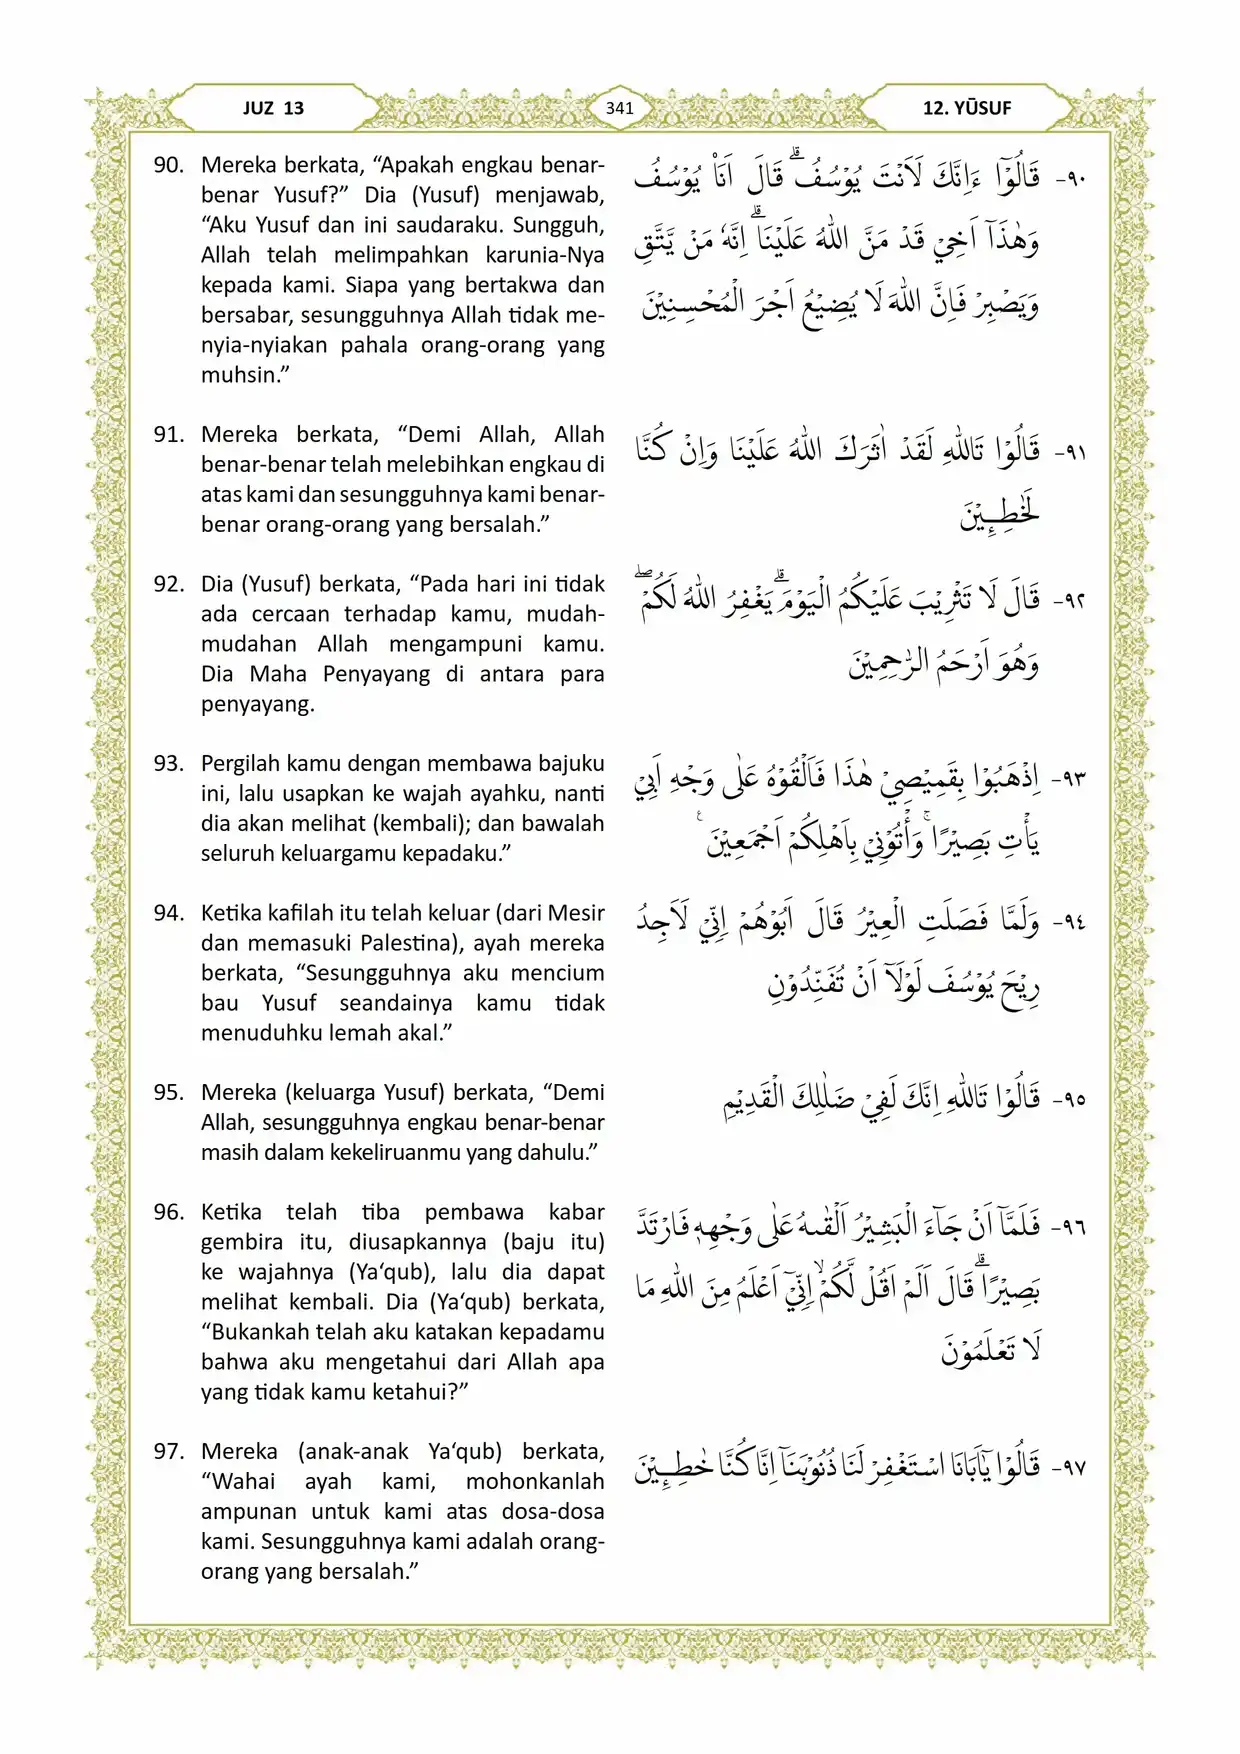 JUZ 13
341
12. YŪSUF
90. Mereka berkata, “Apakah engkau benar-
benar Yusuf?” Dia (Yusuf) menjawab,
“Aku Yusuf dan ini saudaraku. Sungguh,
Allah telah melimpahkan karunia-Nya
kepada kami. Siapa yang bertakwa dan
bersabar, sesungguhnya Allah tidak me-
nyia-nyiakan pahala orang-orang yang
muhsin.”
٩٠- قَالُوْٓا ءَاِنَّكَ لَاَنْتَ يُوْسُفُۗ قَالَ اَنَا۠ يُوْسُفُ
وَهٰذَآ اَخِيْ قَدْ مَنَّ اللّٰهُ عَلَيْنَاۗ اِنَّهٗ مَنْ يَّتَّقِ
وَيَصْبِرْ فَاِنَّ اللّٰهَ لَا يُضِيْعُ اَجْرَ الْمُحْسِنِيْنَ
91. Mereka berkata, “Demi Allah, Allah
benar-benar telah melebihkan engkau di
atas kami dan sesungguhnya kami benar-
benar orang-orang yang bersalah.”
٩١- قَالُوْا تَاللّٰهِ لَقَدْ اٰثَرَكَ اللّٰهُ عَلَيْنَا وَاِنْ كُنَّا
لَخٰطِـِٕيْنَ
92. Dia (Yusuf) berkata, “Pada hari ini tidak
ada cercaan terhadap kamu, mudah-
mudahan Allah mengampuni kamu.
Dia Maha Penyayang di antara para
penyayang.
٩٢- قَالَ لَا تَثْرِيْبَ عَلَيْكُمُ الْيَوْمَۗ يَغْفِرُ اللّٰهُ لَكُمْۖ
وَهُوَ اَرْحَمُ الرّٰحِمِيْنَ
93. Pergilah kamu dengan membawa bajuku
ini, lalu usapkan ke wajah ayahku, nanti
dia akan melihat (kembali); dan bawalah
seluruh keluargamu kepadaku.”
٩٣- اِذْهَبُوْا بِقَمِيْصِيْ هٰذَا فَاَلْقُوْهُ عَلٰى وَجْهِ اَبِيْ
يَأْتِ بَصِيْرًاۚ وَأْتُوْنِيْ بِاَهْلِكُمْ اَجْمَعِيْنَ ࣖ
94. Ketika kafilah itu telah keluar (dari Mesir
dan memasuki Palestina), ayah mereka
berkata, “Sesungguhnya aku mencium
bau Yusuf seandainya kamu tidak
menuduhku lemah akal.”
٩٤- وَلَمَّا فَصَلَتِ الْعِيْرُ قَالَ اَبُوْهُمْ اِنِّيْ لَاَجِدُ
رِيْحَ يُوْسُفَ لَوْلَآ اَنْ تُفَنِّدُوْنِ
95. Mereka (keluarga Yusuf) berkata, “Demi
Allah, sesungguhnya engkau benar-benar
masih dalam kekeliruanmu yang dahulu.”
٩٥- قَالُوْا تَاللّٰهِ اِنَّكَ لَفِيْ ضَلٰلِكَ الْقَدِيْمِ
96. Ketika telah tiba pembawa kabar
gembira itu, diusapkannya (baju itu)
ke wajahnya (Ya‘qub), lalu dia dapat
melihat kembali. Dia (Ya‘qub) berkata,
“Bukankah telah aku katakan kepadamu
bahwa aku mengetahui dari Allah apa
yang tidak kamu ketahui?”
٩٦- فَلَمَّآ اَنْ جَاۤءَ الْبَشِيْرُ اَلْقٰىهُ عَلٰى وَجْهِهٖ فَارْتَدَّ
بَصِيْرًاۗ قَالَ اَلَمْ اَقُلْ لَّكُمْۙ اِنِّيْٓ اَعْلَمُ مِنَ اللّٰهِ مَا
لَا تَعْلَمُوْنَ
97. Mereka (anak-anak Ya‘qub) berkata,
“Wahai ayah kami, mohonkanlah
ampunan untuk kami atas dosa-dosa
kami. Sesungguhnya kami adalah orang-
orang yang bersalah.”
٩٧- قَالُوْا يٰٓاَبَانَا اسْتَغْفِرْ لَنَا ذُنُوْبَنَآ اِنَّا كُنَّا خٰطِـِٕيْنَ